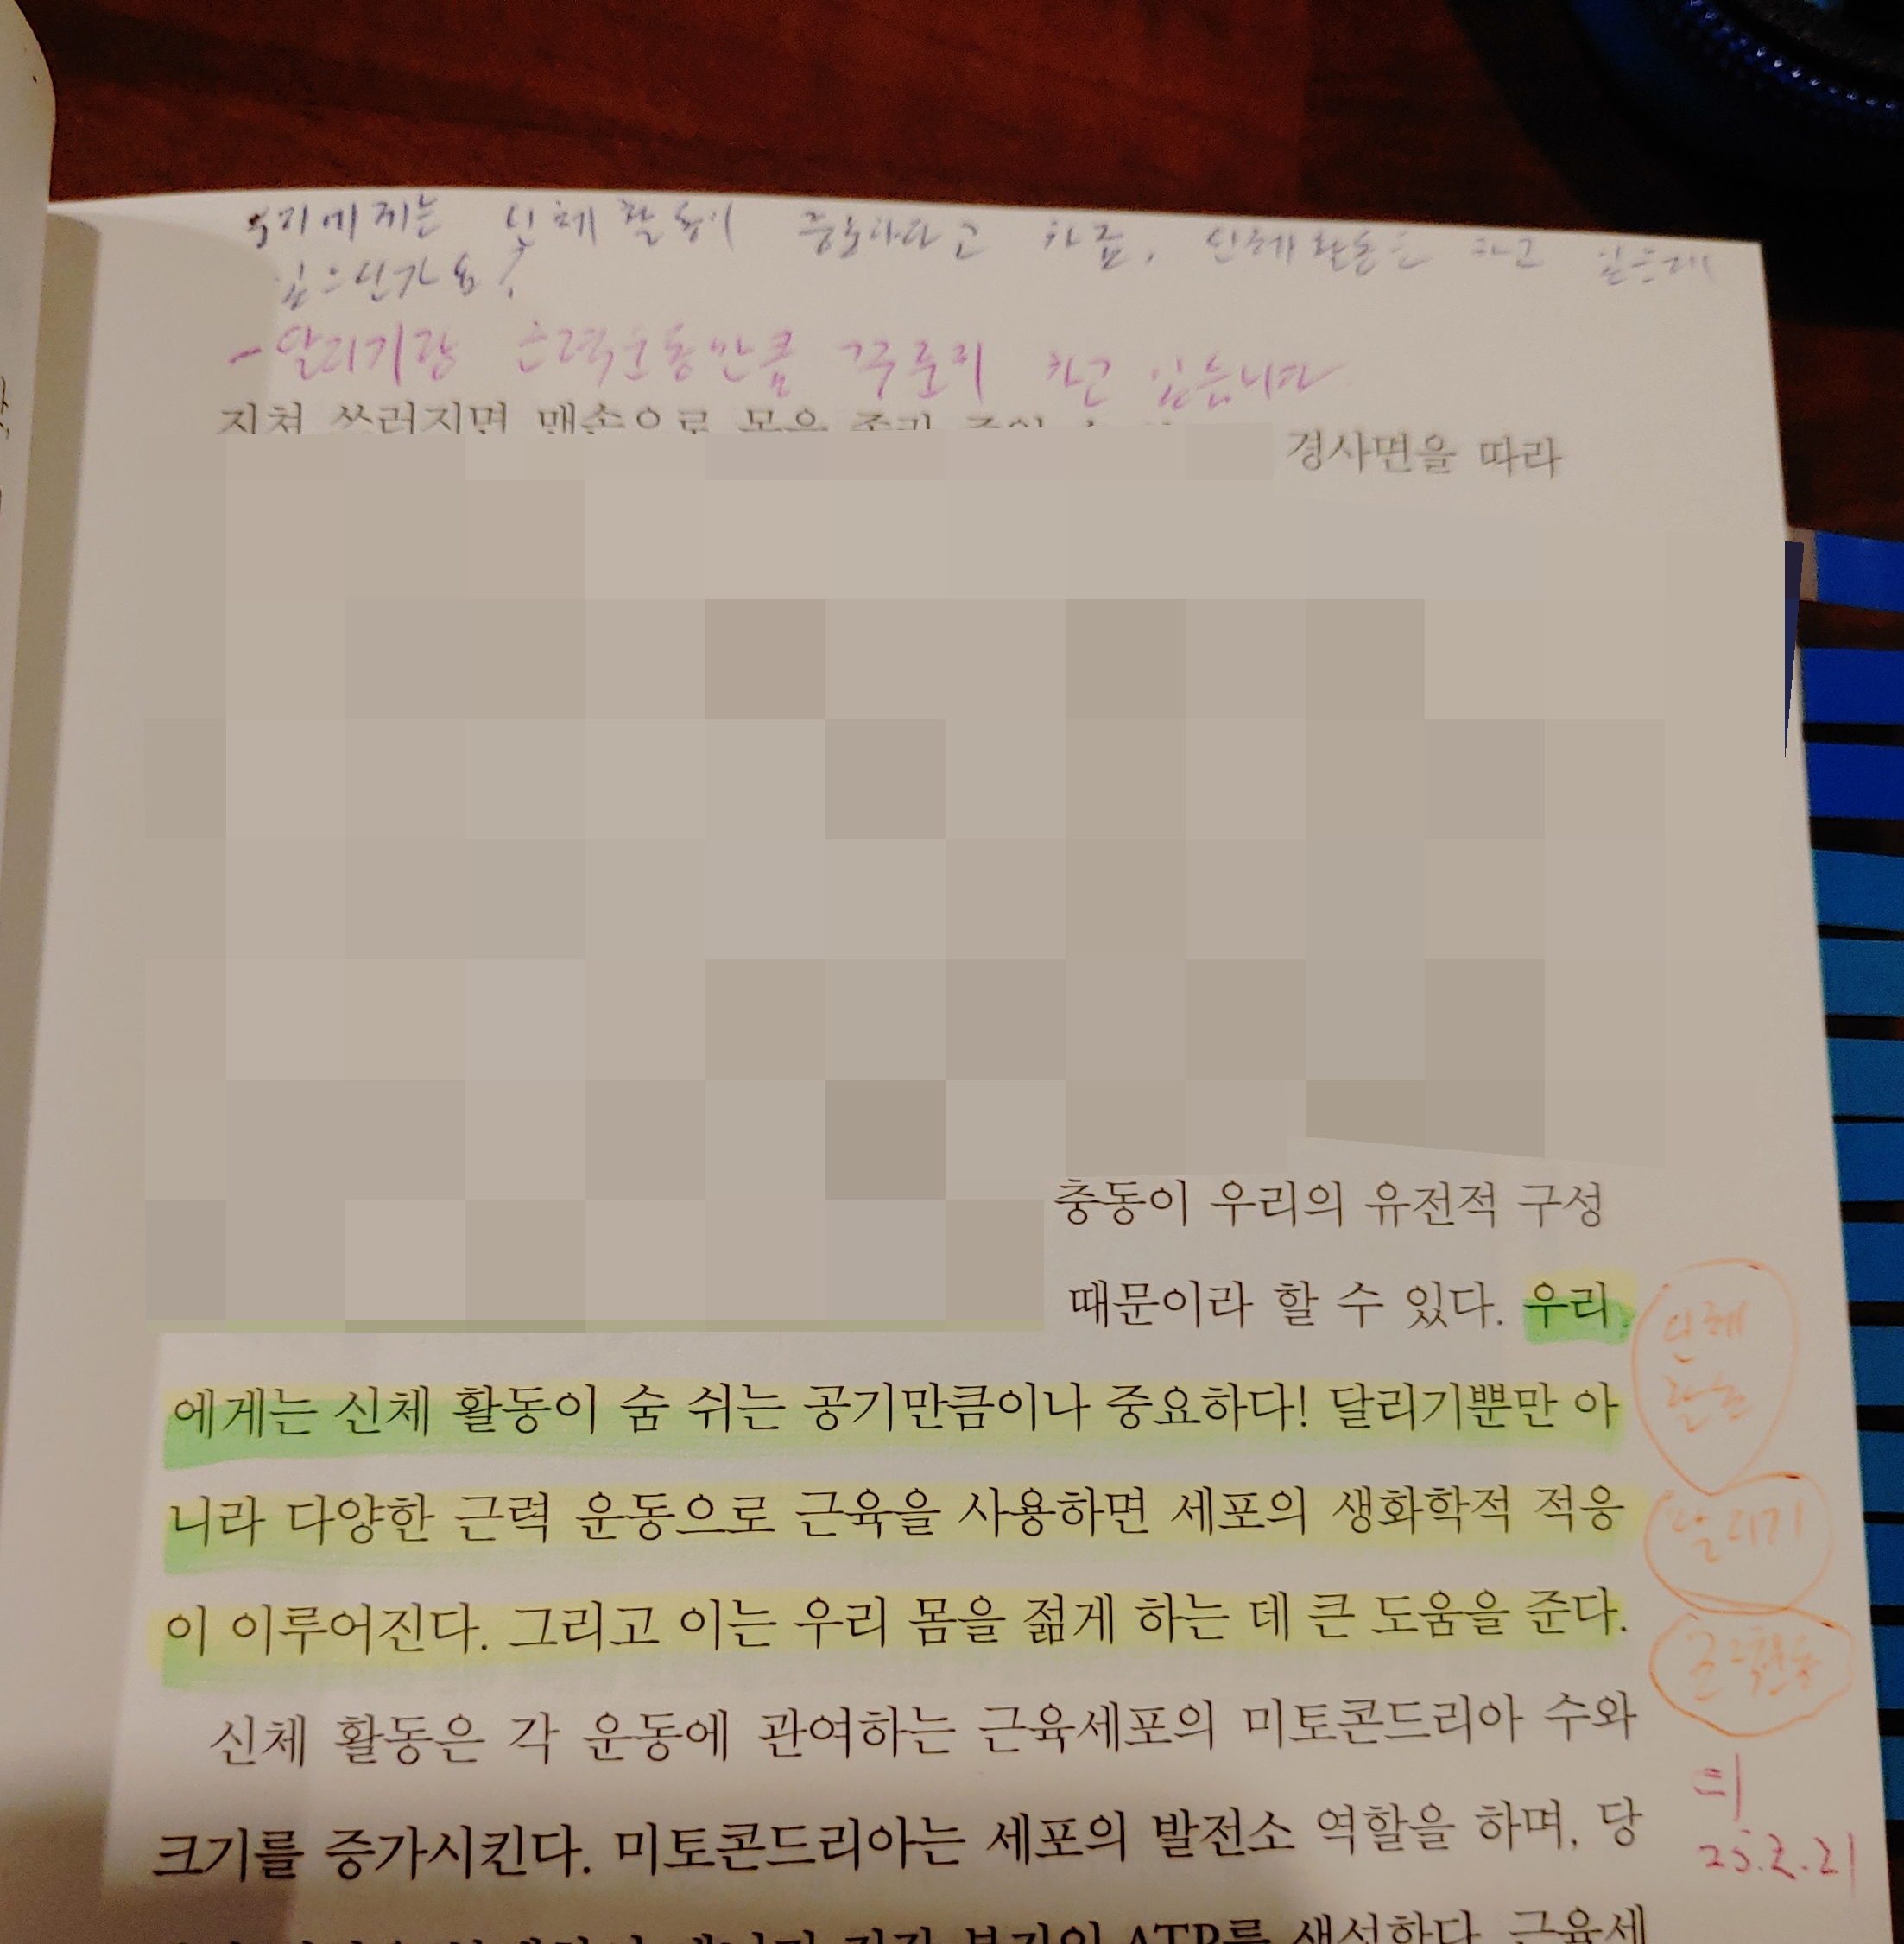 우리에게는 신체 활동이 중요하다고 하죠, 신체활동은 하고
있으신가요?
-달리기랑 근력운동만큼 꾸준히 하고 있습니다
지쳐 쓰러지면 맨손으로 목을
경사면을 따라
충동이 우리의 유전적 구성
때문이라 할 수 있다. 우리
에게는 신체 활동이 숨 쉬는 공기만큼이나 중요하다! 달리기뿐만 아
니라 다양한 근력 운동으로 근육을 사용하면 세포의 생화학적 적응
이 이루어진다. 그리고 이는 우리 몸을 젊게 하는 데 큰 도움을 준다.
신체
활동
달리기
근력운동
신체 활동은 각 운동에 관여하는 근육세포의 미토콘드리아 수와
크기를 증가시킨다. 미토콘드리아는 세포의 발전소 역할을 하며, 당
25.2.21
ATP를 생성한다. 근육세